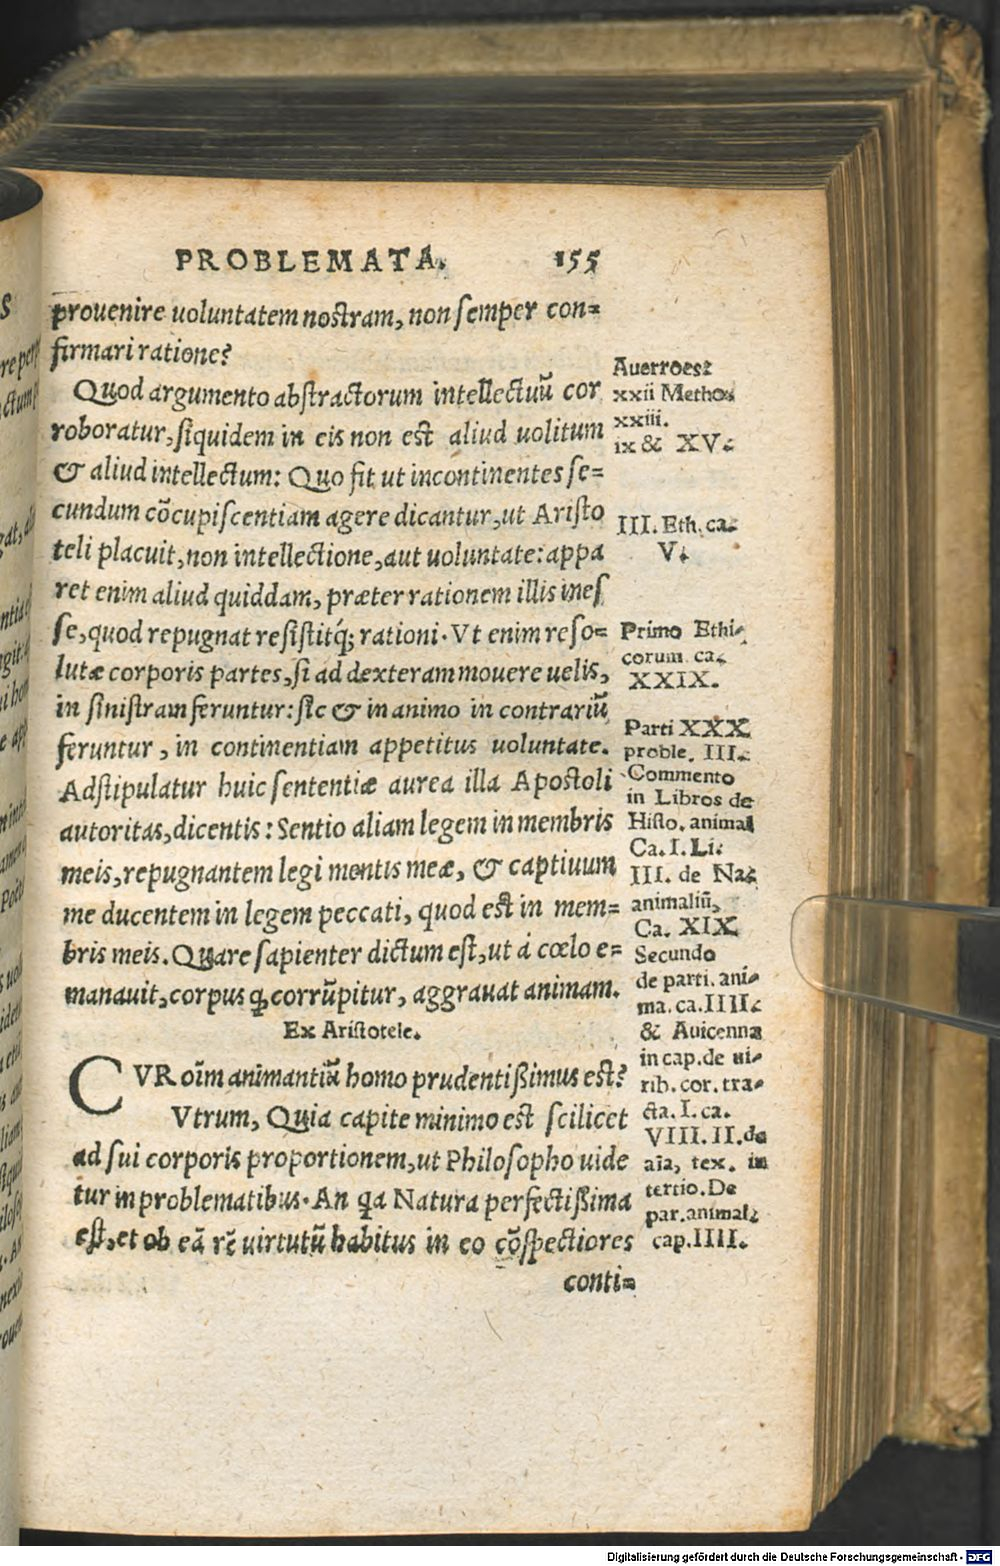 PROBLEMATA. 155
prouenire uoluntatem nostram, non semper con=
firmari ratione?
Quod argumento abstractorum intellectuũ cor
roboratur, siquidem in eis non est aliud uolitum
& aliud intellectum: Quo fit ut incontinentes se=
cundum cõcupiscentiam agere dicantur, ut Aristo
teli placuit, non intellectione, aut uoluntate: appa
ret enim aliud quiddam, præter rationem illis ines
se, quod repugnat resistitq́; rationi. Vt enim reso=
lutæ corporis partes, si ad dexteram mouere uelis,
in sinistram feruntur: sic & in animo in contrariũ
feruntur, in continentiam appetitus uoluntate.
Adstipulatur huic sententiæ aurea illa Apostoli
autoritas, dicentis: Sentio aliam legem in membris
meis, repugnantem legi mentis meæ, & captiuum
me ducentem in legem peccati, quod est in mem=
bris meis. Quare sapienter dictum est, ut á cœlo e=
manauit, corpus ꝙ corrũpitur, aggrauat animam.
Ex Aristotele.
CVR oĩm animantiũ homo prudentißimus est?
Vtrum, Quia capite minimo est scilicet
ad sui corporis proportionem, ut Philosopho uide
tur in problematibus. An q̃a Natura perfectißima
est, et ob eã rẽ uirtutũ habitus in eo cõspectiores
conti=
Auerroes:
xxii Metho.
xxiii.
ix & XV.
III. Eth. ca.
V.
Primo Ethi-
corum ca.
XXIX.
Parti XXX
proble. III.
Commento
in Libros de
Histo. animal
Ca. I. Li.
III. de Na.
animaliũ,
Ca. XIX.
Secundo
de parti. ani-
ma. ca. IIII.
& Auicenna
in cap. de ui-
rib. cor. tra-
cta. I. ca.
VIII. II. de
aĩa, tex. in
tertio. De
par. animal.
cap. IIII.
Digitalisierung gefördert durch die Deutsche Forschungsgemeinschaft - DFG